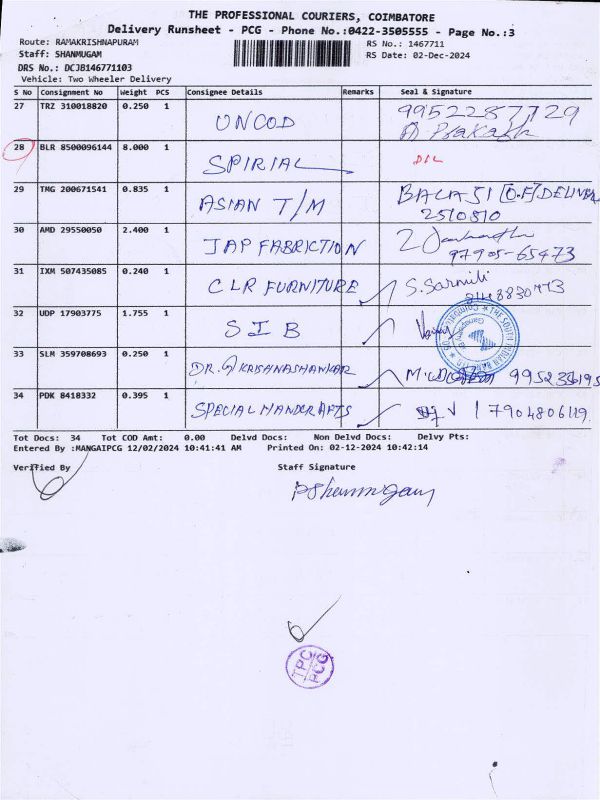 THE PROFESSIONAL COURIERS, COIMBATORE
Delivery Runsheet - PCG - Phone No.:0422-3505555 - Page No.:3
Route: RAMAKRISHNAPURAM RS No.: 1467711
Staff: SHANMUGAM RS Date: 02-Dec-2024
DRS No.: DCJB146771103
Vehicle: Two Wheeler Delivery
S No Consignment No Weight PCS Consignee Details Remarks Seal & Signature
27 TRZ 310018820 0.250 1 UNCOD 9952287729
Prakash
28 BLR 8500096144 8.000 1 SPIRIAL
29 TMG 200671541 0.835 1 ASIAN T/M BALAJI [O.F] DELIVER
2510810
30 AMD 29550050 2.400 1 JAP FABRICTION
97905-65473
31 IXM 507435085 0.240 1 CLR FURNITURE S. Sarmili
32 UDP 17903775 1.755 1 SIB
THE SOUTH INDIAN BANK
33 SLM 359708693 0.250 1 DR. G KRISHNASHANKAR
34 PDK 8418332 0.395 1 SPECIAL HANDCRAFTS 17904806119
Tot Docs: 34 Tot COD Amt: 0.00 Delvd Docs: Non Delvd Docs: Delvy Pts:
Entered By :MANGAIPCG 12/02/2024 10:41:41 AM Printed On: 02-12-2024 10:42:14
Verified By Staff Signature
P Shanmugam
TPC
PCG